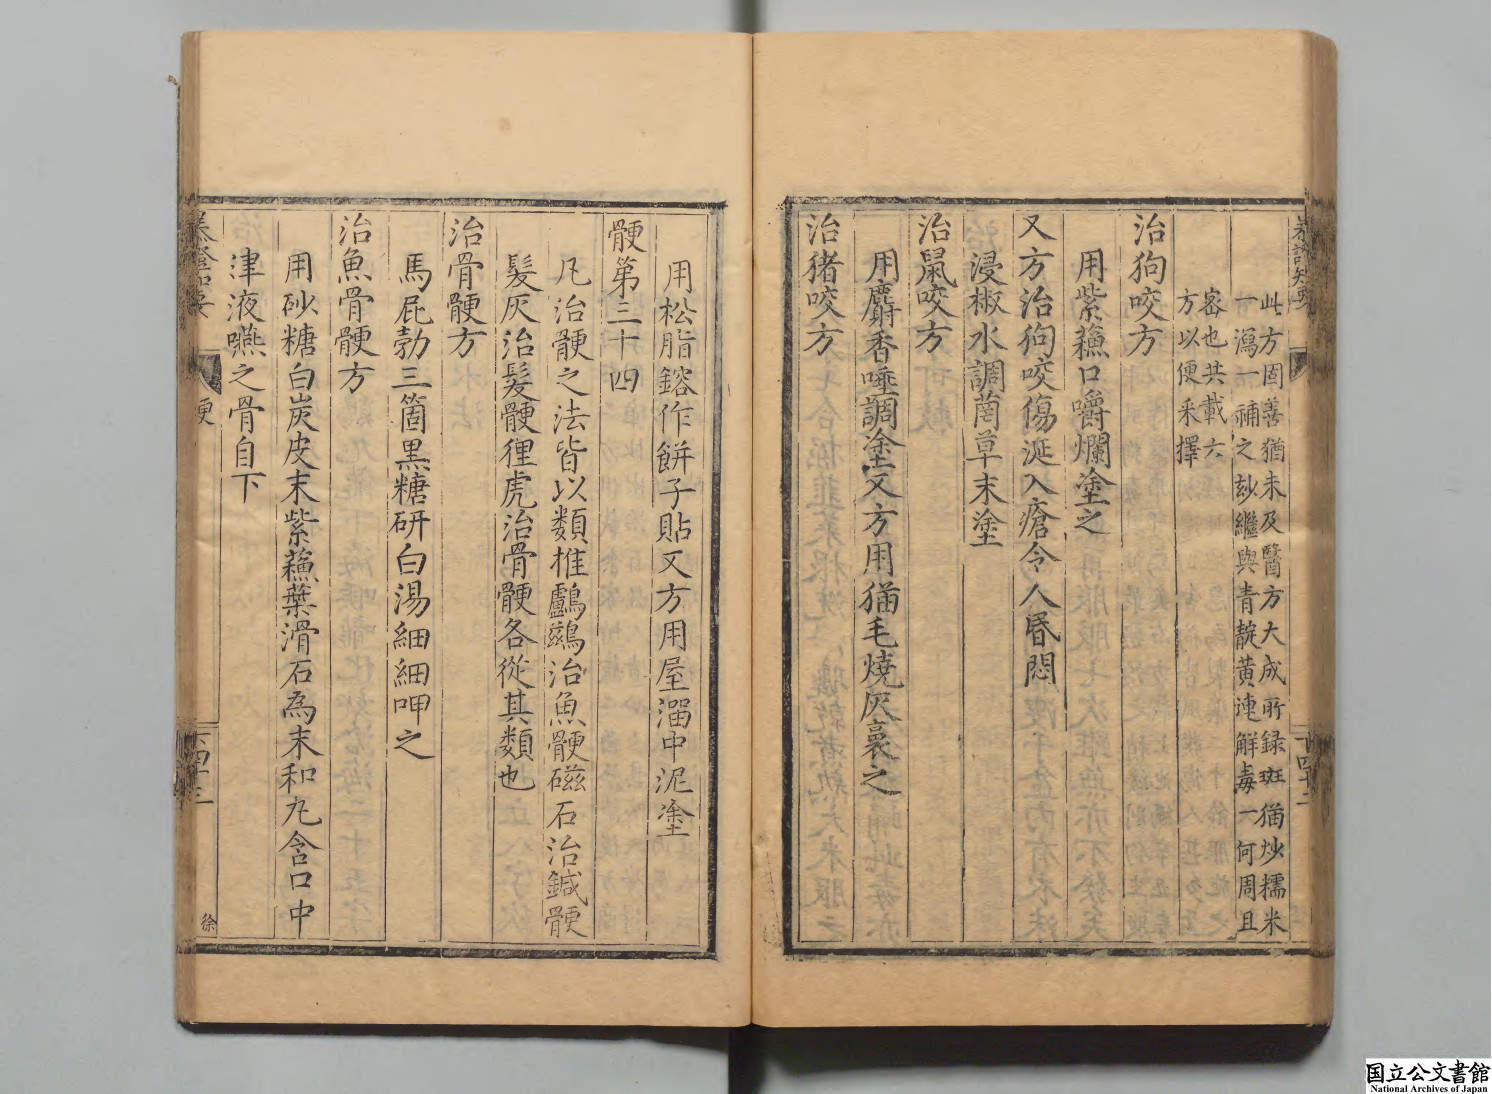 此方固善猶未及醫方大成所録斑猫炒糯米
一瀉一補之玅繼與青靛黃連解毒一何周且
宻也共載六
方以便采擇
治狗咬方
用紫蘓口嚼爛塗之
又方治狗咬傷涎入瘡令人昬悶
浸椒水調莔草末塗
治鼠咬方
用麝香唾調塗又方用猫毛燒灰裛之
治猪咬方
用松脂鎔作餅子貼又方用屋溜中泥塗
骾第三十四
凡治骾之法皆以類推鸕鷀治魚骾磁石治鍼骾
髮灰治髮骾狸虎治骨骾各從其類也
治骨骾方
馬屁勃三箇黒糖研白湯細細呷之
治魚骨骾方
用砂糖白炭皮末紫蘓葉滑石為末和丸含口中
津液嚥之骨自下
徐
国立公文書館
National Archives of Japan